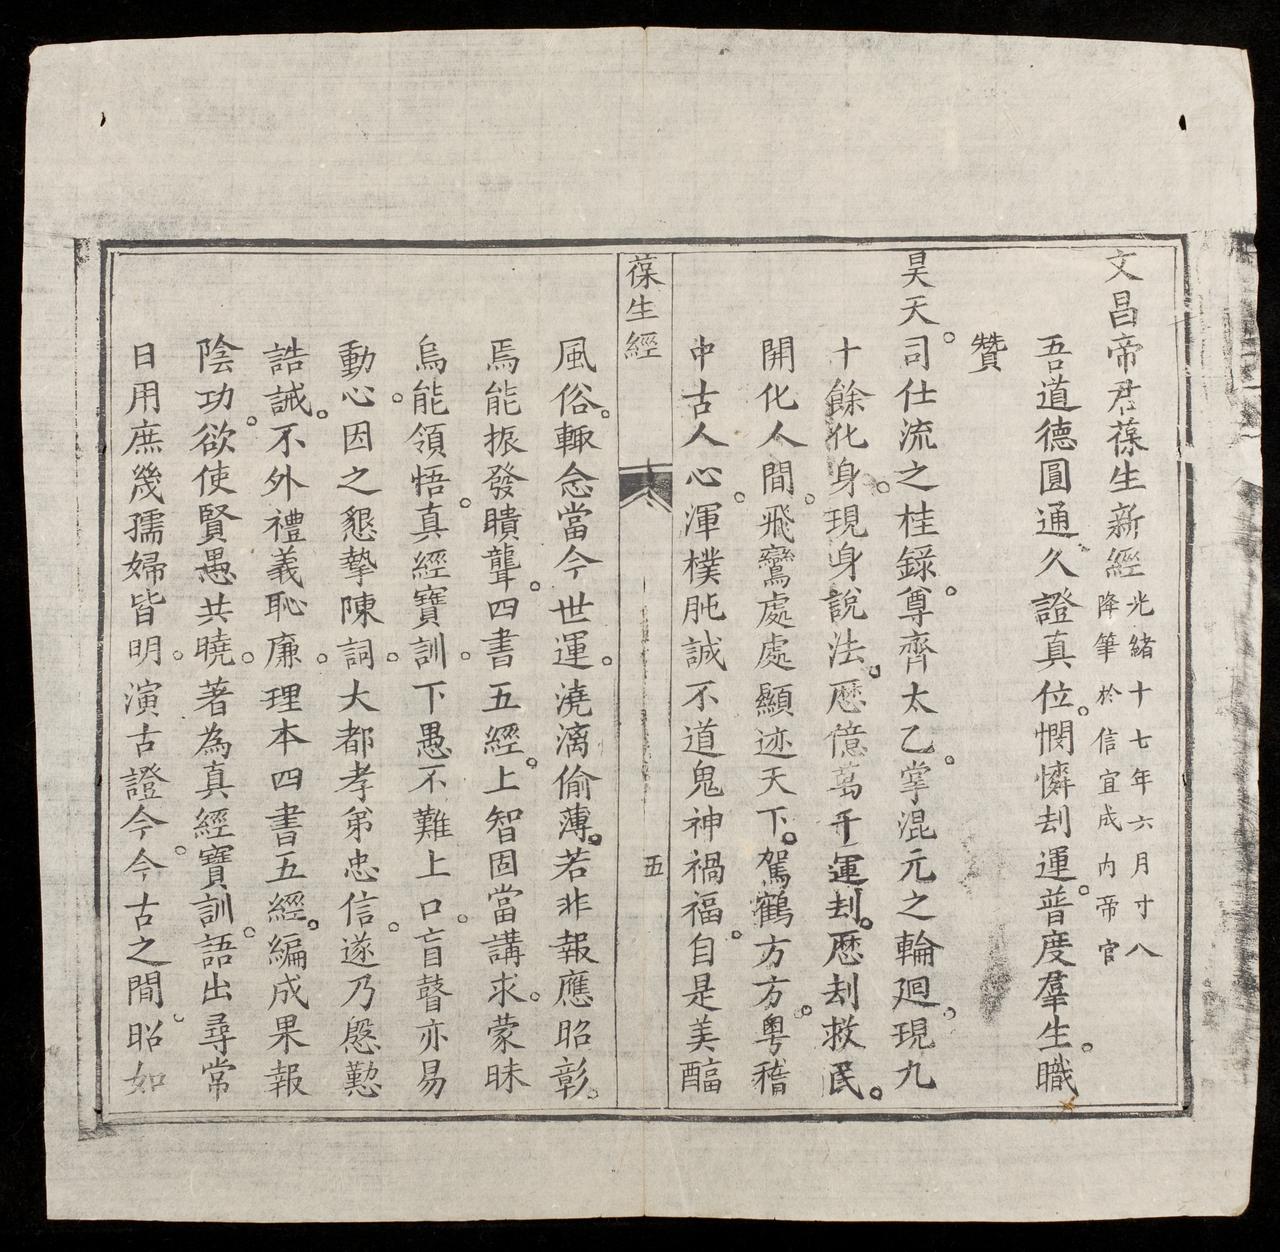 文昌帝君葆生新經光緒十七年六月十八
降筆於信宜成內帝官
吾道德圓通久證真位。憫憐刦運。普度羣生。職
贊
昊天。司仕流之桂錄。尊齊太乙。掌混元之輪迴。現九
十餘化身。現身說法。歷億萬千運刦。歷刦救民。
開化人間。飛鸞處處顯迹天下。駕鶴方方。粵稽
中古人心。渾樸肫誠不道鬼神禍福。自是美醞
葆生經
五
風俗。輒念當今世運。澆漓偷薄。若非報應昭彰。
焉能振發瞶聾。四書五經。上智固當講求。蒙昧
烏能領悟。真經寶訓。下愚不難上口。盲瞽亦易
動心。因之懇摯陳詞。大都孝弟忠信。遂乃慇懃
誥誡。不外禮義恥廉。理本四書五經。編成果報
陰功。欲使賢愚共曉。著為真經寶訓。語出尋常
日用庶幾孺婦皆明。演古證今。今古之間。昭如